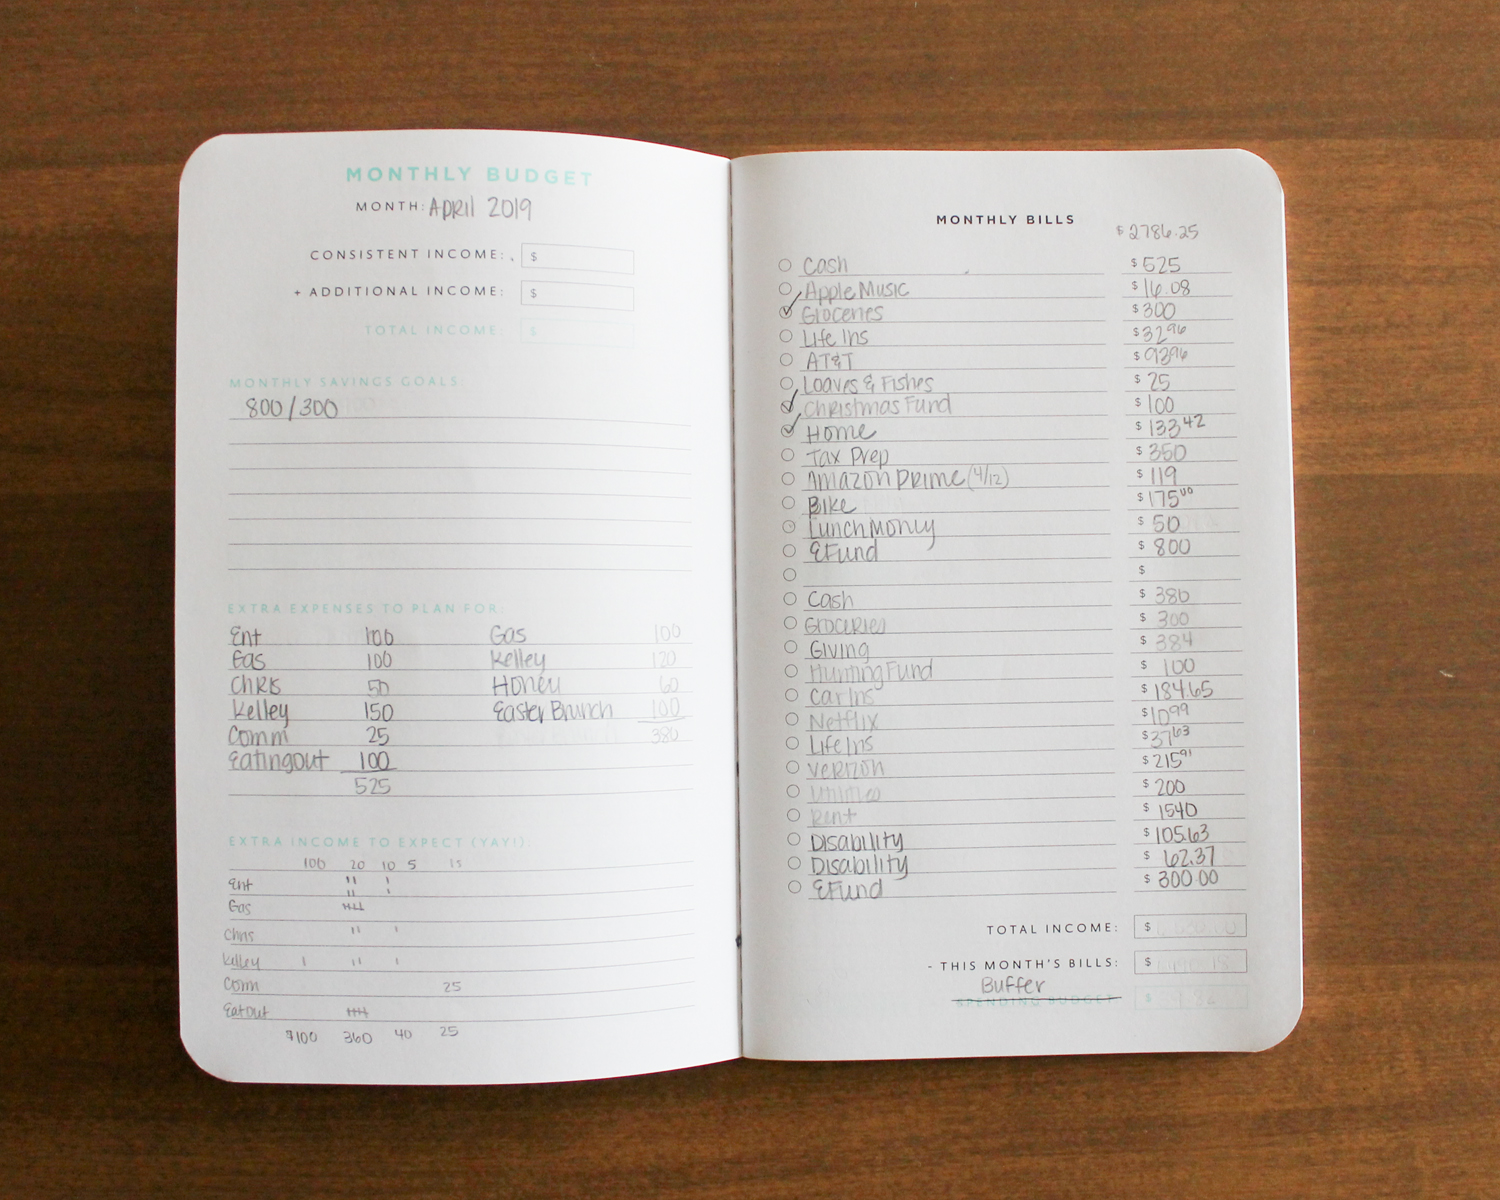 MONTHLY BUDGET
MONTH: APRIL 2019
CONSISTENT INCOME: $
+ ADDITIONAL INCOME: $
TOTAL INCOME: $
MONTHLY SAVINGS GOALS:
800/300
EXTRA EXPENSES TO PLAN FOR:
Ent 100 Gas 100
Gas 100 Kelley 120
Chris 50 Honey 60
Kelley 150 Easter Brunch 100
Comm 25 380
Eatingout 100
525
EXTRA INCOME TO EXPECT (YAY!):
100 20 10 5 15
Ent
Gas
Chris
Kelley
Comm 25
Eatout
$100 360 40 25
MONTHLY BILLS
$2786.25
Cash $525
Apple Music $16.08
Groceries $300
Life Ins $32.96
AT&T $
Loaves & Fishes $25
Christmas Fund $100
Home $133.42
Tax Prep $350
Amazon Prime (4/12) $119
Bike $175.00
Lunch Money $50
EFund $800
$
Cash $380
Groceries $300
Giving $384
Hunting Fund $100
Car Ins $184.65
Netflix $10.99
Life Ins $37.63
Verizon $215.91
Utilities $200
Rent $1540
Disability $105.63
Disability $62.37
EFund $300.00
TOTAL INCOME: $
- THIS MONTH'S BILLS: $
Buffer
SPENDING BUDGET $